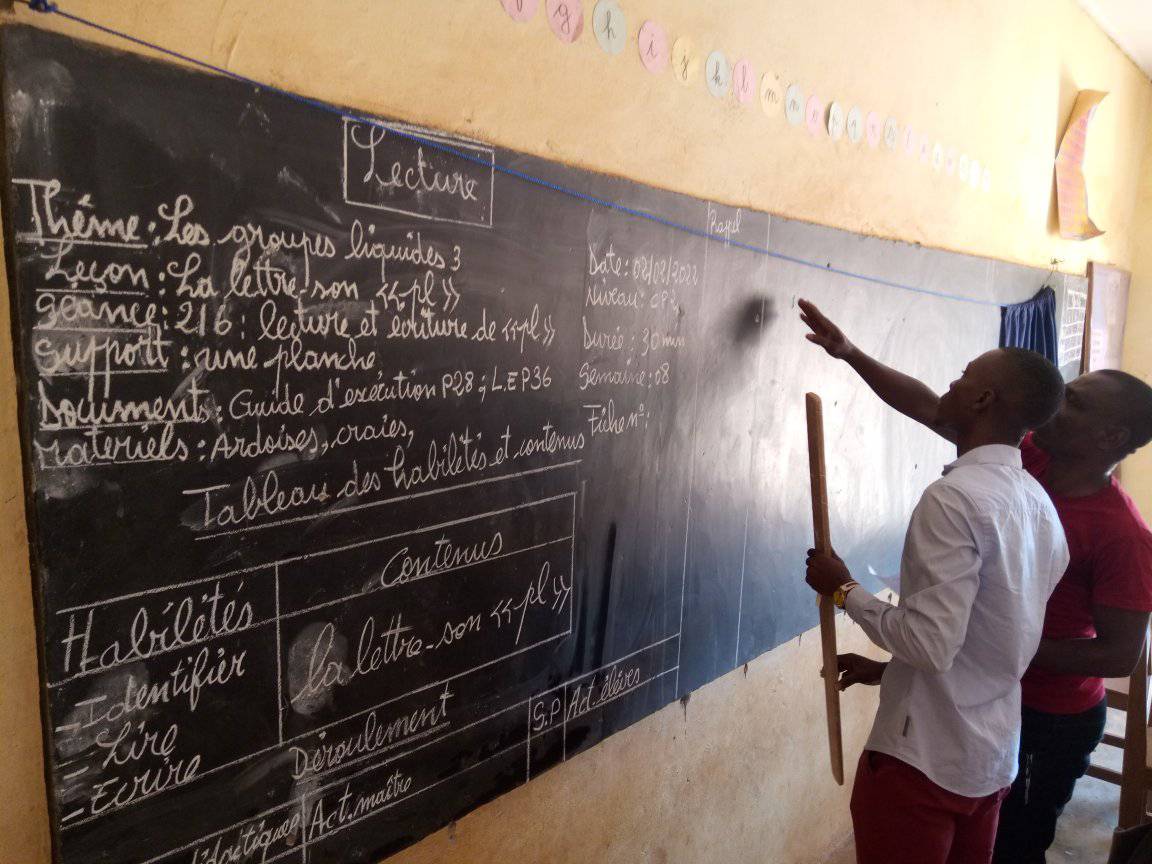 f g h i j k l m n o p q r
Lecture
Rappel
Thème : Les groupes liquides 3
Leçon : La lettre-son «pl»
Séance : 2/6 : lecture et écriture de «pl»
Support : une planche
Documents : Guide d'exécution P28 ; L.E P36
Materiels : Ardoises, craies,
Date : 02/02/2022
Niveau : CP2
Durée : 30 mn
Semaine : 08
Fiche n° :
Tableau des habiletés et contenus
Habiletés
Contenus
- Identifier
- Lire
- Ecrire
la lettre-son «pl»
Déroulement
didactiques
Act. maître
S.P
Act. élèves